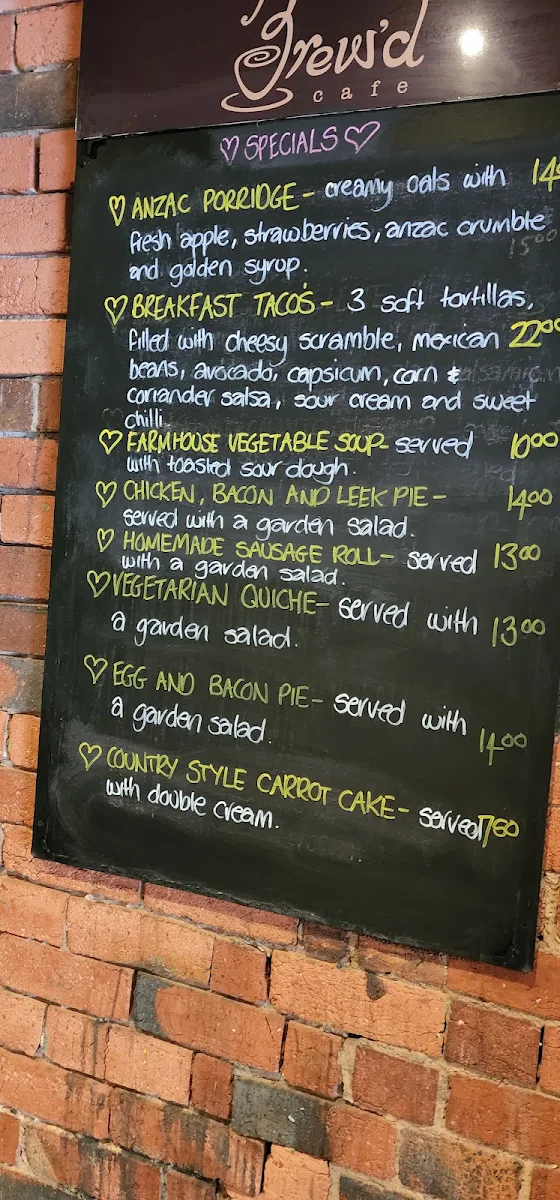 Brew'd
cafe
SPECIALS
ANZAC PORRIDGE - creamy oats with 14
fresh apple, strawberries, anzac crumble
and golden syrup.
BREAKFAST TACO'S - 3 soft tortillas,
filled with cheesy scramble, mexican 2200
beans, avocado, capsicum, corn &
coriander salsa, sour cream and sweet
chilli.
FARMHOUSE VEGETABLE SOUP - served 1000
with toasted sour dough.
CHICKEN, BACON AND LEEK PIE - 1400
served with a garden salad.
HOMEMADE SAUSAGE ROLL - served 1300
with a garden salad.
VEGETARIAN QUICHE - served with 1300
a garden salad.
EGG AND BACON PIE - served with
a garden salad. 1400
COUNTRY STYLE CARROT CAKE - served 760
with double cream.